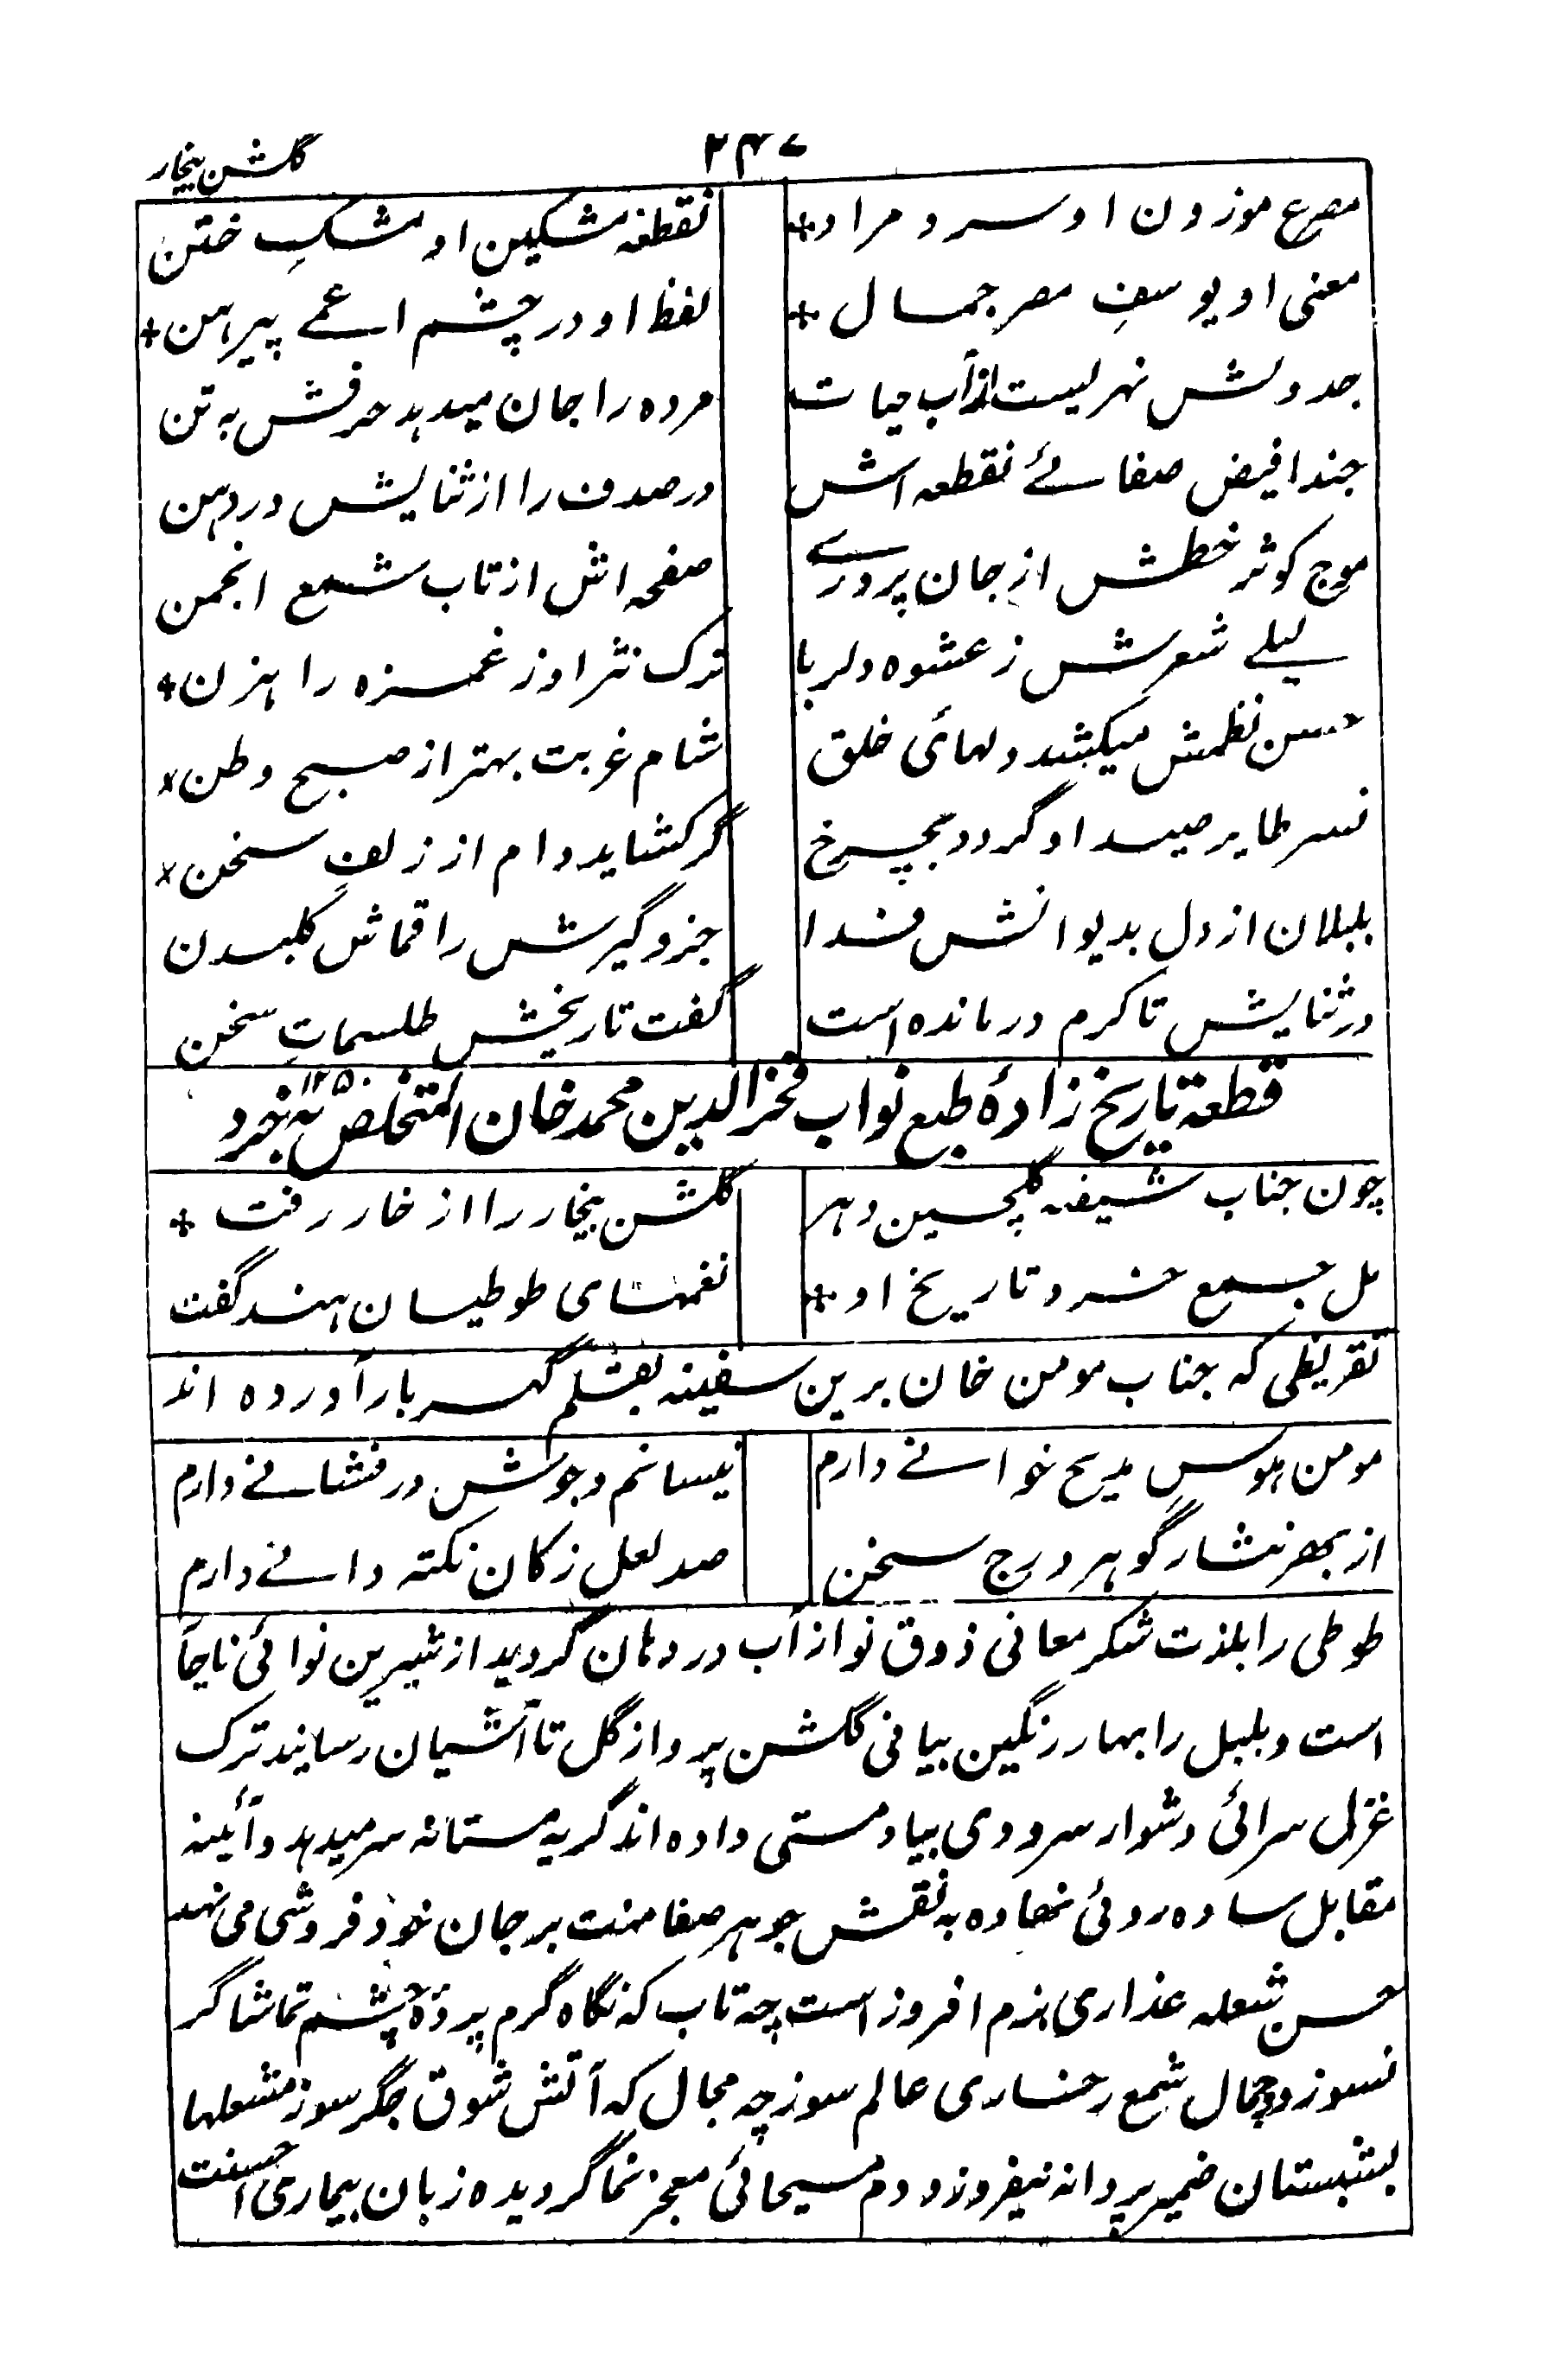 ۲۴۷ گلشن بیخار
مصرع موزون او سرو مراد نقطهٔ مشکین او مشکِ ختن
معنی او یوسفِ مصر جمال لفظ او در چشم اعمے پیراهن
جدولش نهریست از آب حیات مرده را جان میدهد حرفش به تن
حبذا فیض صفائے نقطه اش در صدف را از ثنایش در دهن
موج کوثر خطش از جان پرورے صفحه اش از تاب شمع انجمن
لیلے شعرش ز عشوه دلربا ترک نثر او ز غمزه راهزن
حسن نظمش میکشد دلهائ خلق شام غربت بهتر از صبح وطن
نسر طایر صید او گردد بچرخ گر کشاید دام از زلفِ سخن
بلبلان از دل بدیوانش فدا جزو گیرش را قماش گلبدن
در ثنایش تا کرم درمانده است گفت تاریخش طلسماتِ سخن
۱۲۵۰
قطعهٔ تاریخ زادهٔ طبع نواب فخرالدین محمد خان المتخلص به خرد
چون جناب شیفته گلچین دهر گلشن بیخار را از خار رفت
مل جمع خرد تاریخ او نغمهای طوطیان هند گفت
تقریظی که جناب مومن خان برین سفینه بقلم گهر بار آورده اند
مومن هوسِ مدیح خوانے دارم نیسانم و جوش درفشانے دارم
از بهر نثار گوهر درج سخن صد لعل ز کان نکته دانے دارم
طوطی را بلذت شکر معانی ذوق نواز آب در دهان گردید از شیرین نوائی ناچار
است و بلبل را بهار رنگین بیانی گلشن پرواز گل تا آشیان رسانید ترک
غزل سرائی دشوار سرودی بیاد مستی داده اند گریه مستانه سر میدهد و آئینه
مقابل ساده روئی نهاده به نقش جوهر صفا منت بر جان خود فروشی می نهد
حسن شعله عذاری بزم افروز است چه تاب که نگاه گرم پردهٔ چشم تماشاگر
نسوزد و جمال شمع رخساری عالم سوز چه مجال که آتش شوق جگر سوز مشعلها
بشبستان ضمیر پروانه نیفروزد و دم مسیحائی معجز نما گردیده زبان بیماری احسنت